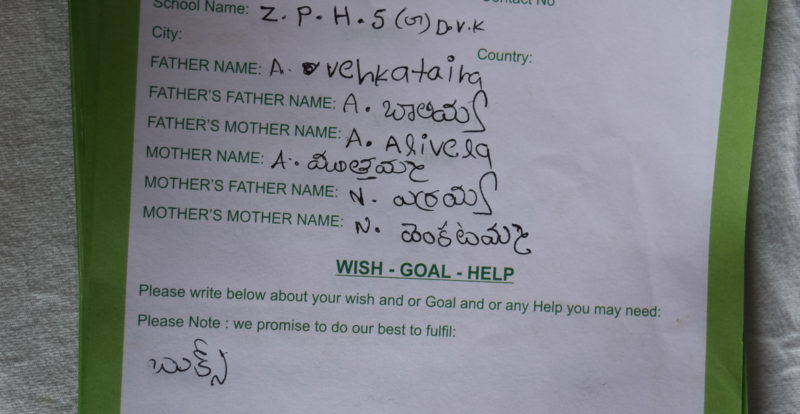 Contact No
School Name: Z.P.H.S (జగ) D.V.K
City:
Country:
FATHER NAME: A. venkataiha
FATHER'S FATHER NAME: A. బాలయ్య
FATHER'S MOTHER NAME: A. Alivela
MOTHER NAME: A. ముత్తమ్మ
MOTHER'S FATHER NAME: N. ఎర్రయ్య
MOTHER'S MOTHER NAME: N. వెంకటమ్మ
WISH - GOAL - HELP
Please write below about your wish and or Goal and or any Help you may need:
Please Note : we promise to do our best to fulfil:
బుక్స్